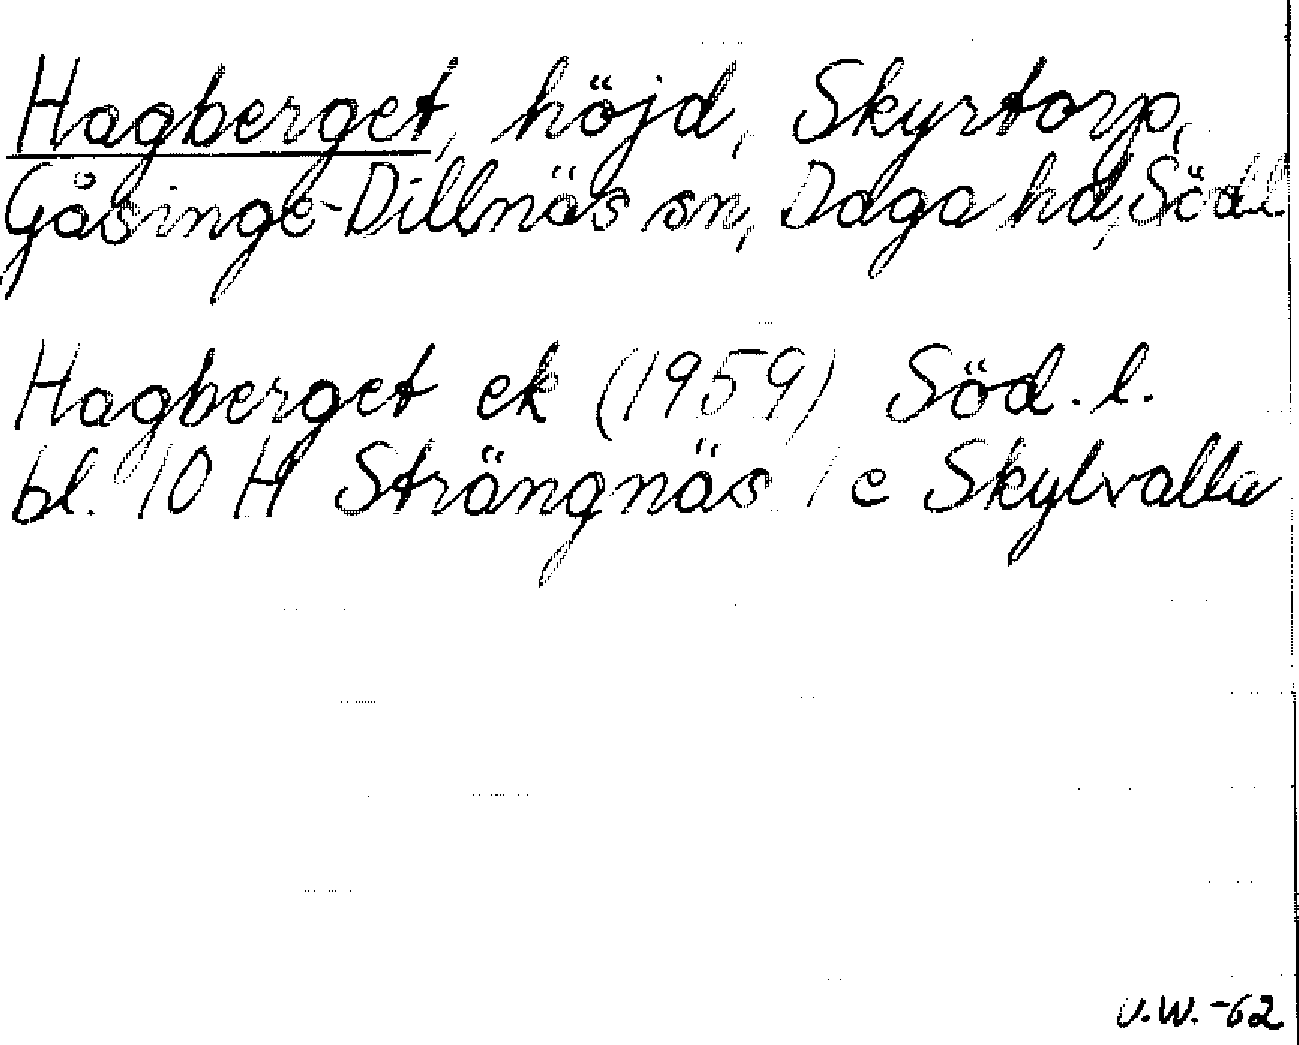 Hagberget, höjd, Skyrtorp,
Gåsinge-Dillnäs sn, Daga hd, Södl
Hagberget ek (1959) Söd. l.
bl. 10 H Strängnäs 1 c Skylvalla
U.W. -62